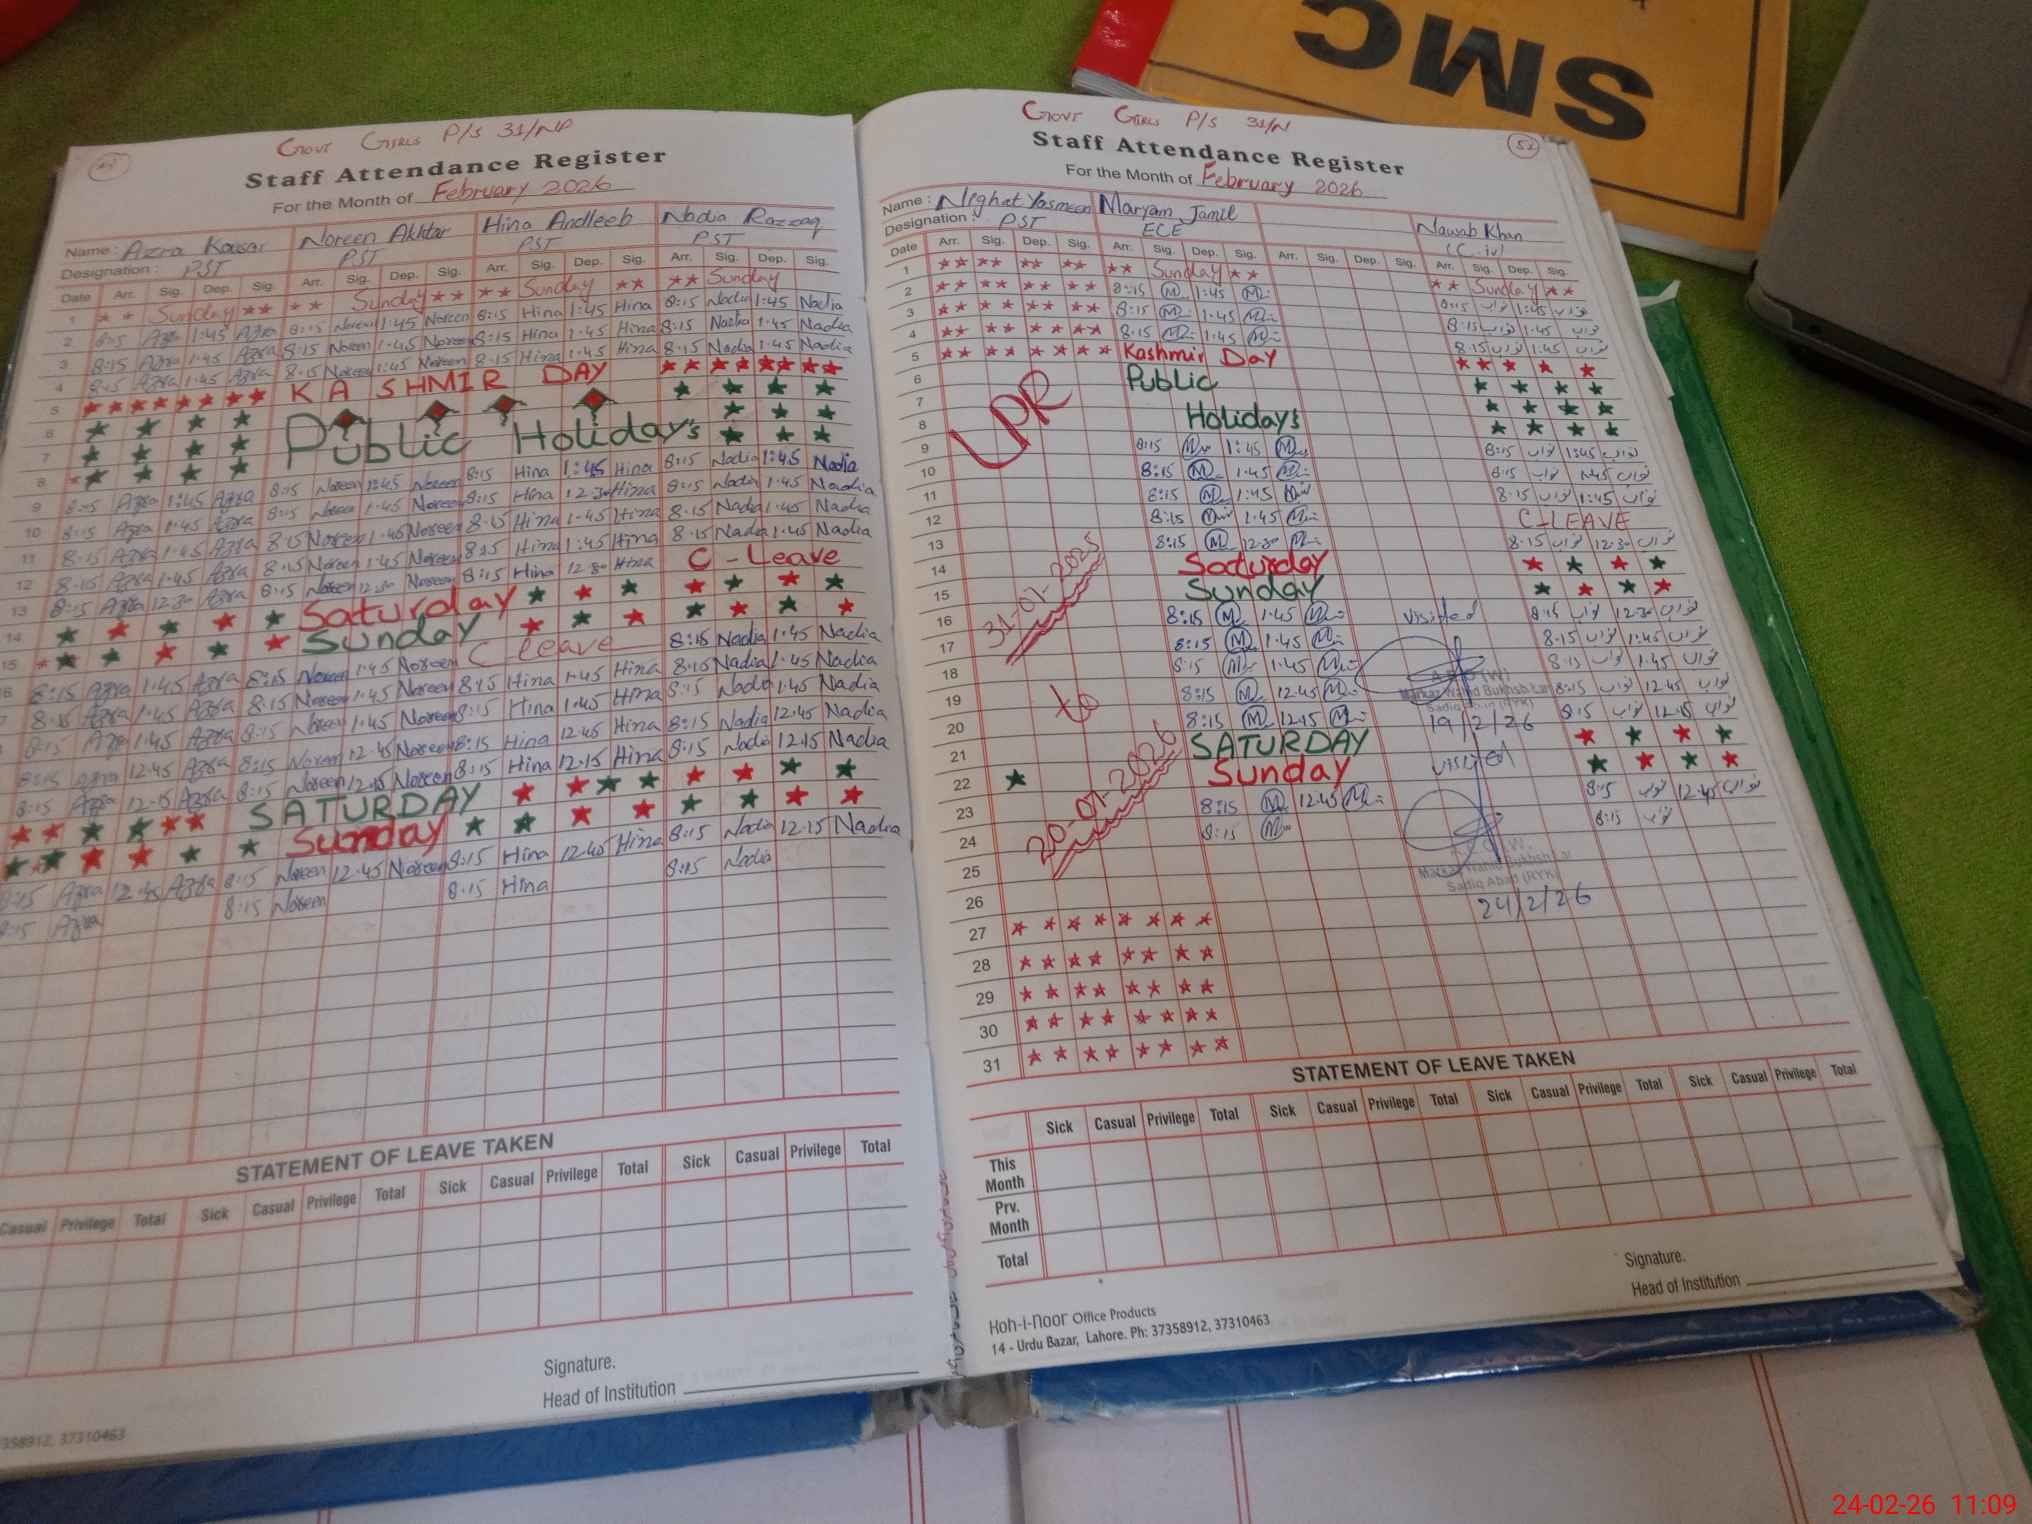 SMC
Govt Girls P/S 31/NP
Staff Attendance Register
For the Month of February 2026
Name : Azra Kousar Noreen Akhtar Hina Andleeb Nadia Razzaq
Designation : PST PST PST PST
Date Arr. Sig. Dep. Sig. Arr. Sig. Dep. Sig. Arr. Sig. Dep. Sig. Arr. Sig. Dep. Sig.
1 Sunday Sunday Sunday Sunday
2 8:15 Azra 1:45 Azra 8:15 Noreen 1:45 Noreen 8:15 Hina 1:45 Hina 8:15 Nadia 1:45 Nadia
3 8:15 Azra 1.45 Azra 8.15 Noreen 1.45 Noreen 8:15 Hina 1.45 Hina 8:15 Nadia 1.45 Nadia
4 8.15 Azra 1.45 Azra 8.15 Noreen 1.45 Noreen 8.15 Hina 1.45 Hina 8.15 Nadia 1.45 Nadia
5 KASHMIR DAY
6
7 Public Holiday's
8
9 8:15 Azra 1:45 Azra 8:15 Noreen 1:45 Noreen 8:15 Hina 1:45 Hina 8:15 Nadia 1:45 Nadia
10 8:15 Azra 1.45 Azra 8:15 Noreen 1.45 Noreen 8:15 Hina 12.30 Hina 8:15 Nadia 1.45 Nadia
11 8.15 Azra 1.45 Azra 8.15 Noreen 1.45 Noreen 8.15 Hina 1.45 Hina 8:15 Nadia 1.45 Nadia
12 8.15 Azra 1.45 Azra 8.15 Noreen 1.45 Noreen 8:15 Hina 1:45 Hina 8.15 Nadia 1.45 Nadia
13 8:15 Azra 12.30 Azra 8:15 Noreen 12.30 Noreen 8:15 Hina 12.30 Hina C - Leave
14 Saturday
15 Sunday
8:15 Azra 1.45 Azra 8:15 Noreen 1.45 Noreen C leave 8:15 Nadia 1.45 Nadia
8.15 Azra 1.45 Azra 8:15 Noreen 1.45 Noreen 8:15 Hina 1.45 Hina 8:15 Nadia 1.45 Nadia
8:15 Azra 1.45 Azra 8:15 Noreen 1.45 Noreen 8:15 Hina 1.45 Hina 8:15 Nadia 1.45 Nadia
8:15 Azra 12.45 Azra 8:15 Noreen 12.45 Noreen 8:15 Hina 12.45 Hina 8:15 Nadia 12.45 Nadia
8:15 Azra 12.15 Azra 8:15 Noreen 12.15 Noreen 8:15 Hina 12.15 Hina 8:15 Nadia 12.15 Nadia
SATURDAY
Sunday
8:15 Azra 12.45 Azra 8:15 Noreen 12.45 Noreen 8:15 Hina 12.45 Hina 8:15 Nadia 12.15 Nadia
8:15 Azra 8:15 Noreen 8.15 Hina 8:15 Nadia
STATEMENT OF LEAVE TAKEN
Casual Privilege Total Sick Casual Privilege Total Sick Casual Privilege Total Sick Casual Privilege Total
Signature.
Head of Institution
358912, 37310463
Govt Girls P/S 31/N
52
Staff Attendance Register
For the Month of February 2026
Name : Nighat Yasmeen Maryam Jamil Nawab Khan
Designation : PST ECE (C.iv)
Date Arr. Sig. Dep. Sig. Arr. Sig. Dep. Sig. Arr. Sig. Dep. Sig. Arr. Sig. Dep. Sig.
1 Sunday Sunday
2 8:15 1:45 8:15 نواب 1:45 نواب
3 8:15 1:45 8:15 نواب 1.45 نواب
4 8.15 1.45 8.15 نواب 1:45 نواب
5 Kashmir Day
6 Public
7
8 Holiday's
9 8:15 1:45 8:15 نواب 1:45 نواب
10 8:15 1.45 8:15 نواب 1.45 نواب
11 8:15 1:45 8.15 نواب 1:45 نواب
12 8:15 1.45 C-LEAVE
13 8:15 12.30 8.15 نواب 12.30 نواب
14 Saturday
15 Sunday
16 8:15 1.45 8:15 نواب 12.30 نواب
17 8:15 1.45 8.15 نواب 1:45 نواب
18 8:15 1.45 8:15 نواب 1.45 نواب
19 8:15 12.45 8:15 نواب 12.45 نواب
20 8:15 12.15 8:15 نواب 12.15 نواب
21 SATURDAY
22 Sunday
23 8:15 12.45 8:15 نواب 12.45 نواب
24 8:15 8:15 نواب
25
26
27
28
29
30
31
LPR
31-07-2025
to
20-07-2026
Visited
19/2/26
Visited
Sadiq Abad (RYK)
24/2/26
STATEMENT OF LEAVE TAKEN
Sick Casual Privilege Total Sick Casual Privilege Total Sick Casual Privilege Total Sick Casual Privilege Total
This Month
Prv. Month
Total
Signature.
Head of Institution
Koh-I-Noor Office Products
14 - Urdu Bazar, Lahore. Ph: 37358912, 37310463
24-02-26 11:09